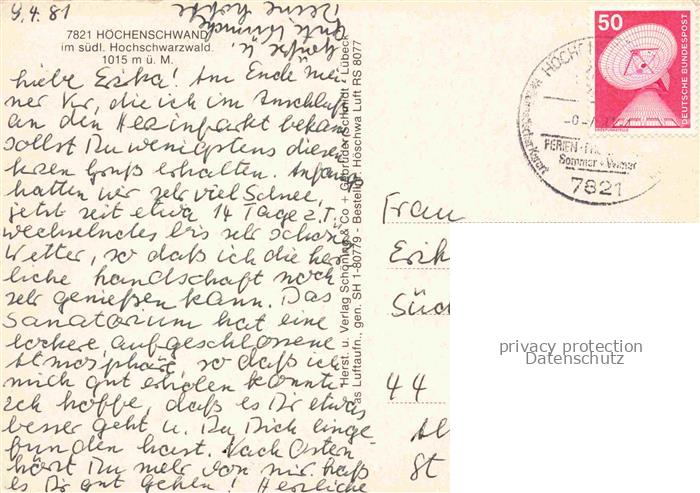 9.4.81
7821 HÖCHENSCHWAND
im südl. Hochschwarzwald.
1015 m ü. M.
Liebe Erika! Am Ende mei-
ner Kur, die ich im Anschluß
an den Herzinfarkt bekam
sollst Du wenigstens diesen
kurzen Gruß erhalten. Anfangs
hatten wir sehr viel Schnee,
jetzt seit etwa 14 Tage z. T.
wechselndes bis sehr schönes
Wetter, so daß ich die herr
liche Landschaft noch
sehr genießen kann. Das
Sanatorium hat eine
lockere, aufgeschlossene
Atmosphäre, so daß ich
mich gut erholen konnte
Ich hoffe, daß es Dir etwas
besser geht u. Du Dich einge
funden hast. Nach Ostern
hörst Du mehr von mir, laß
es Dir gut gehen! Herzliche
Grüße u.
gute Wünsche
Deine
Herst. u. Verlag Schöning & Co + Gebrüder Schmidt · Lübeck
as Luftaufn., gen. SH 1-80779 - Bestellnr. Höschwa Luft RS 8077
50
DEUTSCHE BUNDESPOST
HÖCHE
FERIEN
Sommer + Winter
7821
Frau
Erik
Süd
44
Al
St
privacy protection
Datenschutz